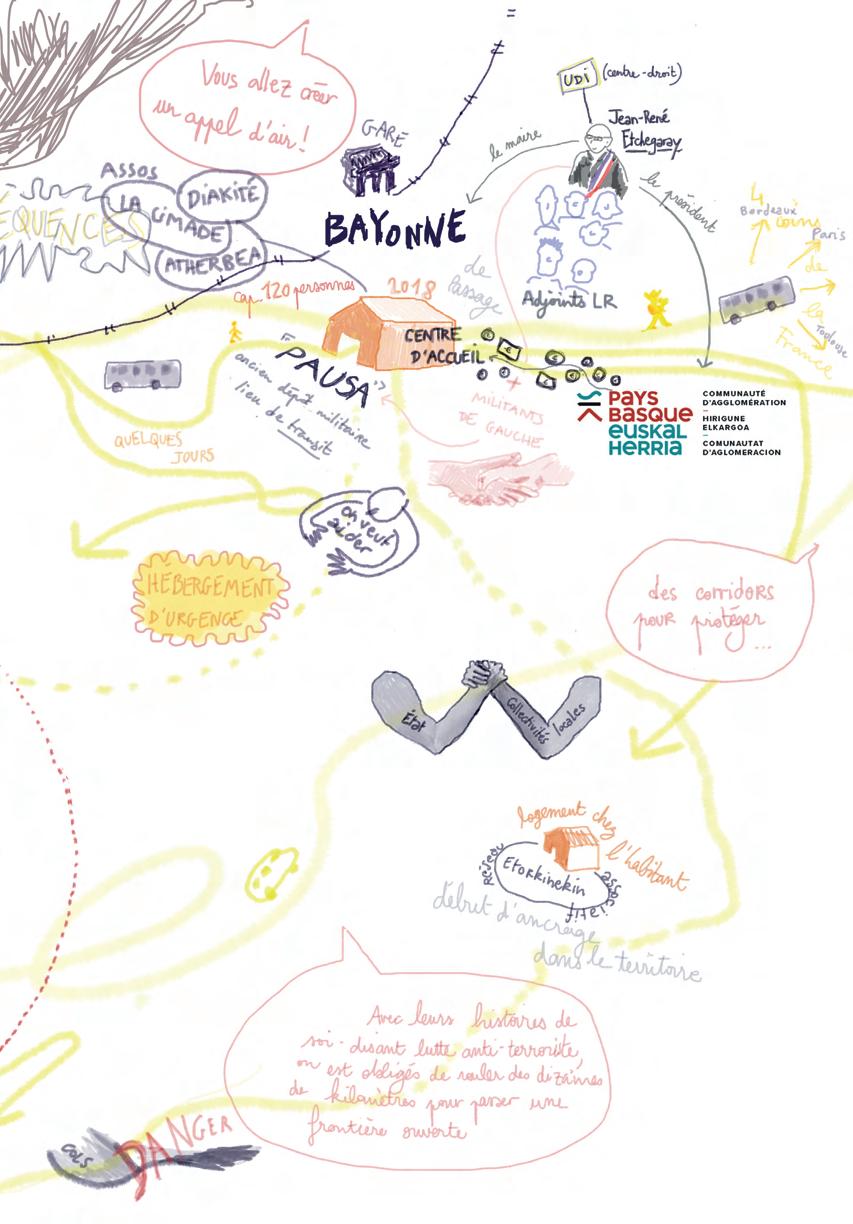 Vous allez créer
un appel d'air !
UDI (centre-droit)
Jean-René
Etchegaray
GARE
le maire
le président
ASSOS
LA CIMADE
DIAKITÉ
ATHERBEA
BAYONNE
cap. 120 personnes
2018
de
passage
Adjoints LR
4
coins
de
la
France
Bordeaux
Paris
Toulouse
CENTRE
D'ACCUEIL
" PAUSA "
ancien dépôt militaire
lieu de transit
+
MILITANTS
DE GAUCHE
PAYS
BASQUE
EUSKAL
HERRIA
COMMUNAUTÉ
D'AGGLOMÉRATION
HIRIGUNE
ELKARGOA
COMUNAUTAT
D'AGLOMERACION
QUELQUES
JOURS
on veut
aider
HÉBERGEMENT
D'URGENCE
des corridors
pour protéger
...
État
Collectivités
locales
logement chez
l'habitant
Réseau
Etorkinekin
associatif
début d'ancrage
dans le territoire
Avec leurs histoires de
soi-disant lutte anti-terroriste,
on est obligés de rouler des dizaines
de kilomètres pour passer une
frontière ouverte
COLS
DANGER